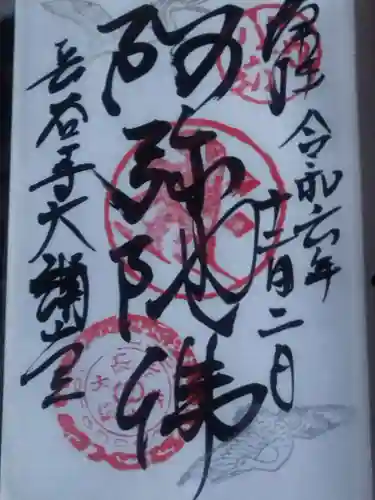 奉拝
令和六年
十二月二日
阿弥陀佛
長谷寺大講堂